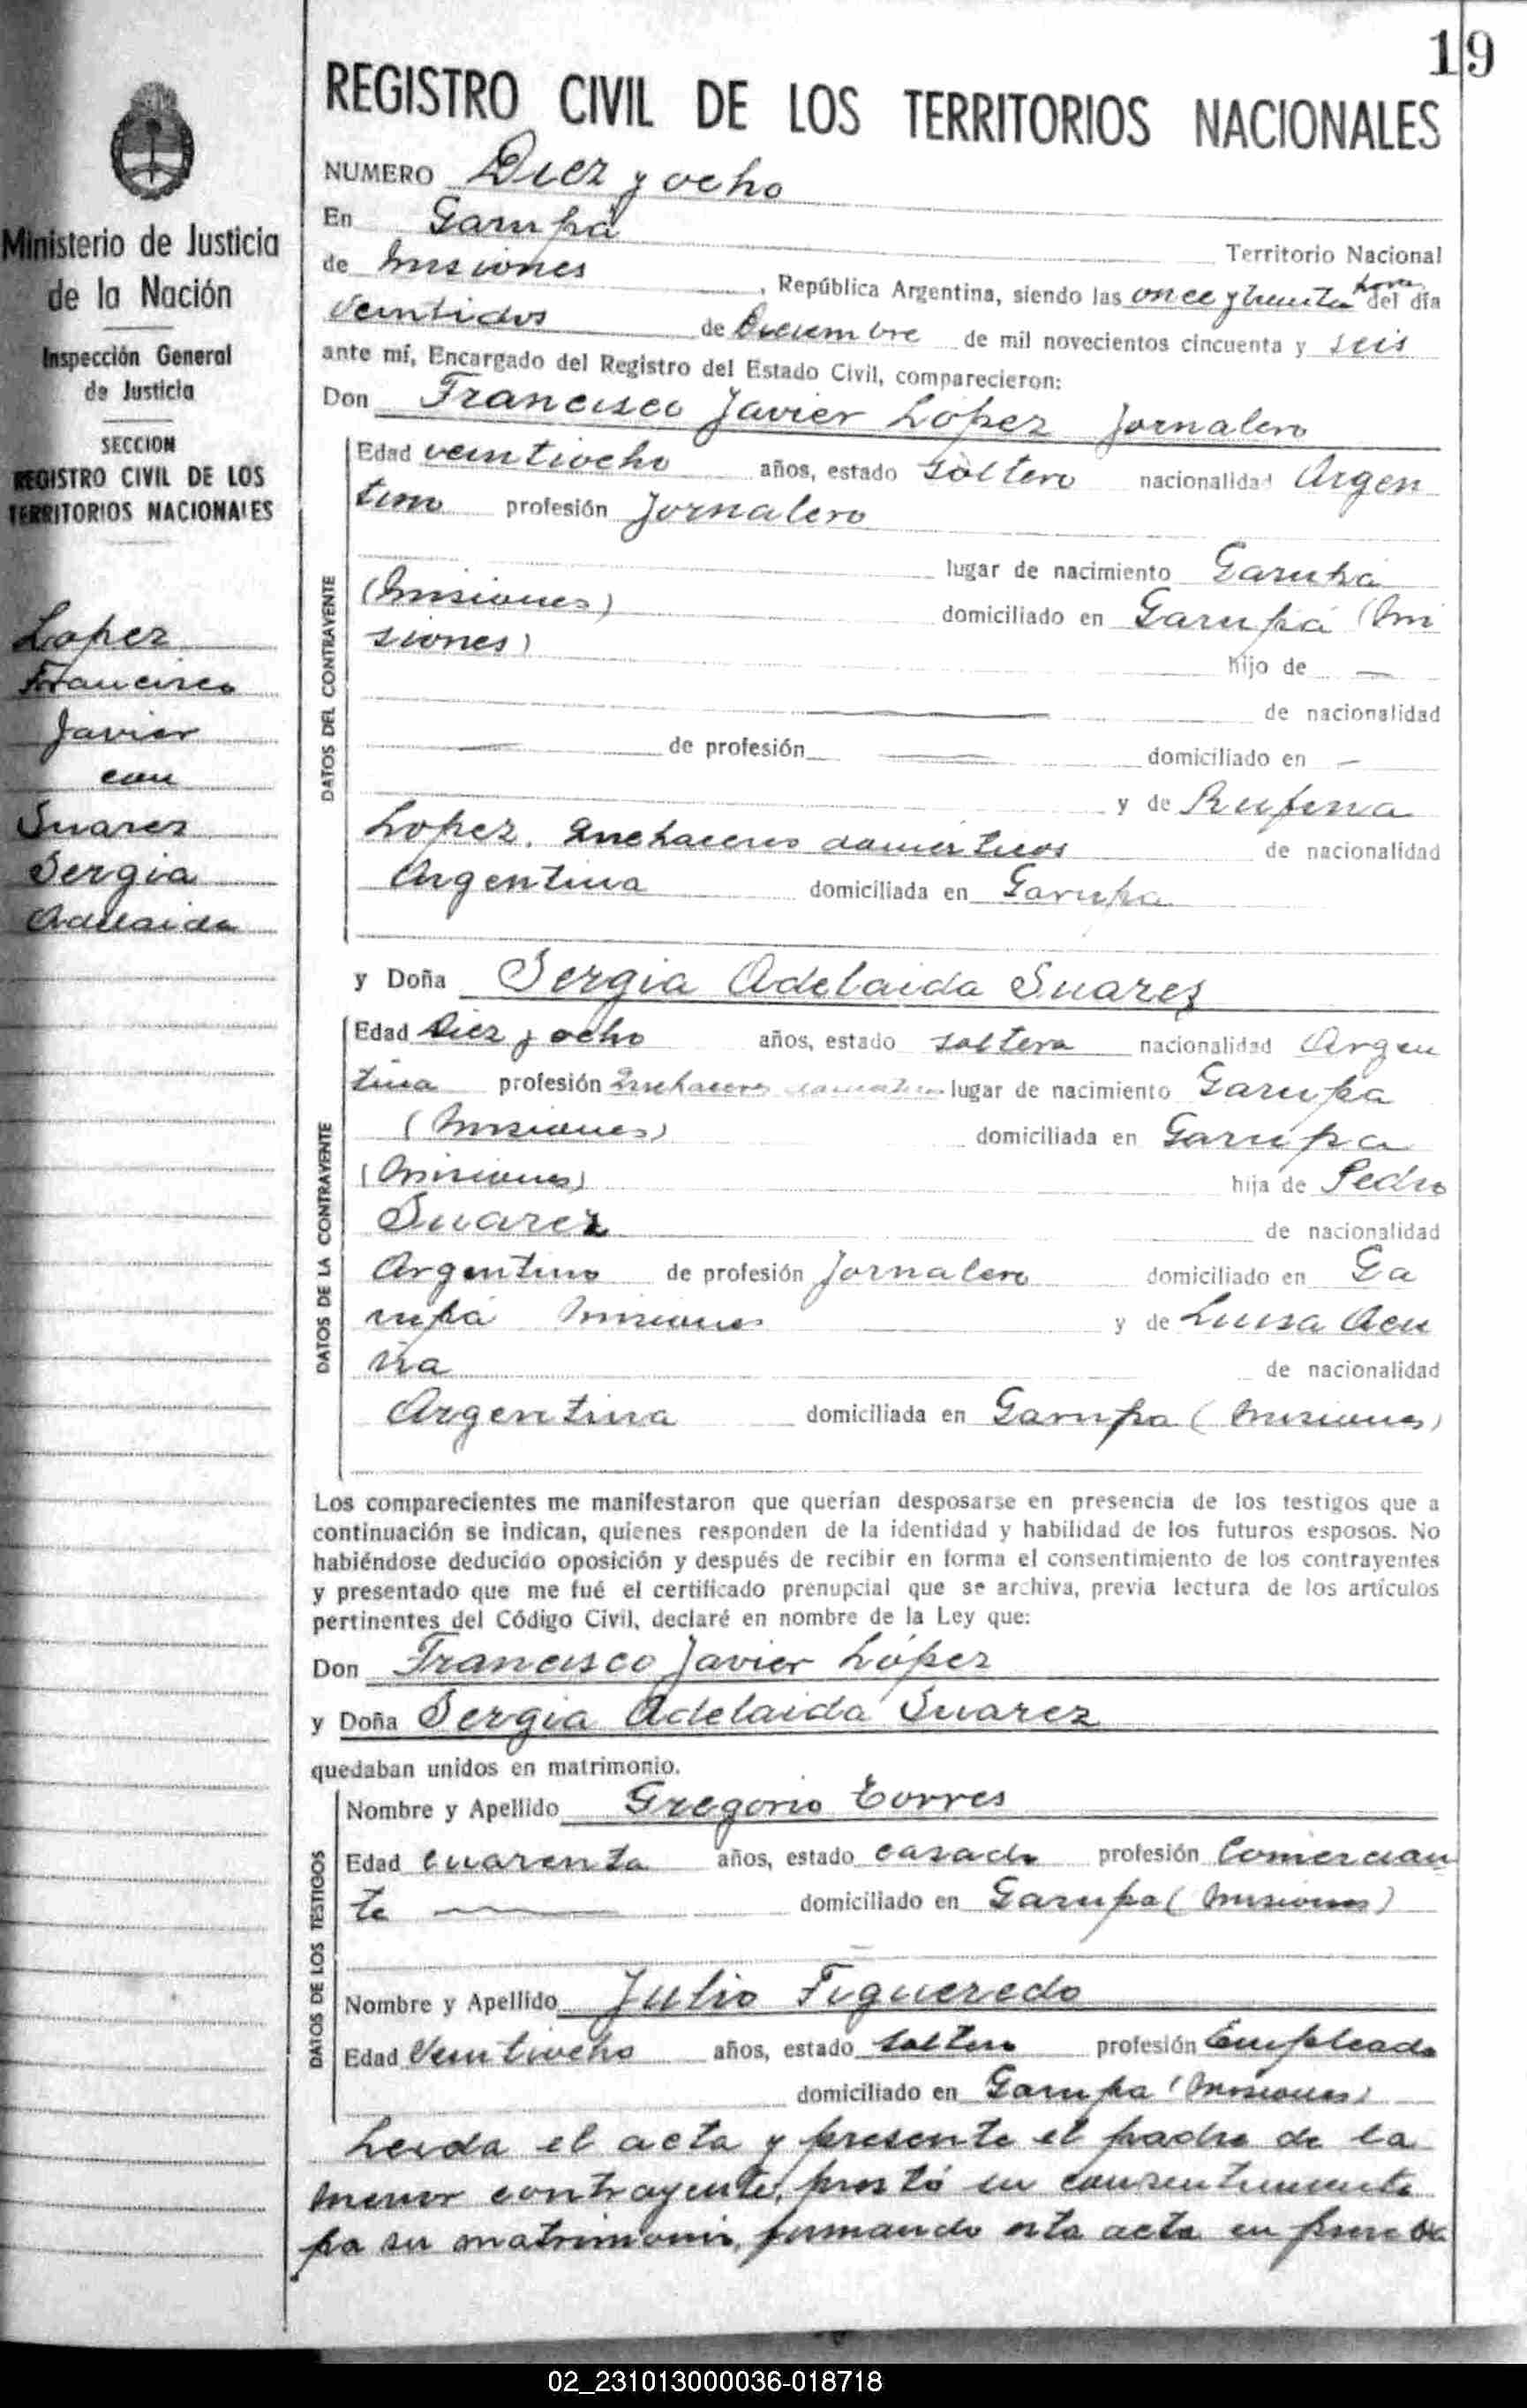 19
REGISTRO CIVIL DE LOS TERRITORIOS NACIONALES
Ministerio de Justicia
de la Nación
Inspección General
de Justicia
SECCION
REGISTRO CIVIL DE LOS
TERRITORIOS NACIONALES
Lopez
Francisco
Javier
con
Suarez
Sergia
Adelaida
NUMERO Diez y ocho
En Garupá
Territorio Nacional
de Misiones, República Argentina, siendo las once y treinta horas del día
Veintidos de Diciembre de mil novecientos cincuenta y seis
ante mí, Encargado del Registro del Estado Civil, comparecieron:
Don Francisco Javier López Jornalero
DATOS DEL CONTRAYENTE
Edad veintiocho años, estado soltero nacionalidad Argen
tino profesión Jornalero
lugar de nacimiento Garupá
(Misiones) domiciliado en Garupá (Mi
siones) hijo de —
— de nacionalidad
— de profesión — domiciliado en —
y de Rufina
Lopez. Quehaceres domésticos de nacionalidad
Argentina domiciliada en Garupa
y Doña Sergia Adelaida Suares
DATOS DE LA CONTRAYENTE
Edad Diez y ocho años, estado soltera nacionalidad Argen
tina profesión Quehaceres domésticos lugar de nacimiento Garupa
(Misiones) domiciliada en Garupa
(Misiones) hija de Pedro
Suarez de nacionalidad
Argentino de profesión Jornalero domiciliado en Ga
rupá Misiones y de Luisa Acu
ña de nacionalidad
Argentina domiciliada en Garupa (Misiones)
Los comparecientes me manifestaron que querían desposarse en presencia de los testigos que a
continuación se indican, quienes responden de la identidad y habilidad de los futuros esposos. No
habiéndose deducido oposición y después de recibir en forma el consentimiento de los contrayentes
y presentado que me fué el certificado prenupcial que se archiva, previa lectura de los artículos
pertinentes del Código Civil, declaré en nombre de la Ley que:
Don Francisco Javier López
y Doña Sergia Adelaida Suarez
quedaban unidos en matrimonio.
DATOS DE LOS TESTIGOS
Nombre y Apellido Gregorio Torres
Edad cuarenta años, estado casado profesión Comercian
te — domiciliado en Garupa (Misiones)
Nombre y Apellido Julio Figueredo
Edad Veintiocho años, estado soltero profesión Empleado
domiciliado en Garupa (Misiones)
Leida el acta y presente el padre de la
menor contrayente, prestó su consentimiento
pa su matrimonio, firmando esta acta en prueba
02_231013000036-018718